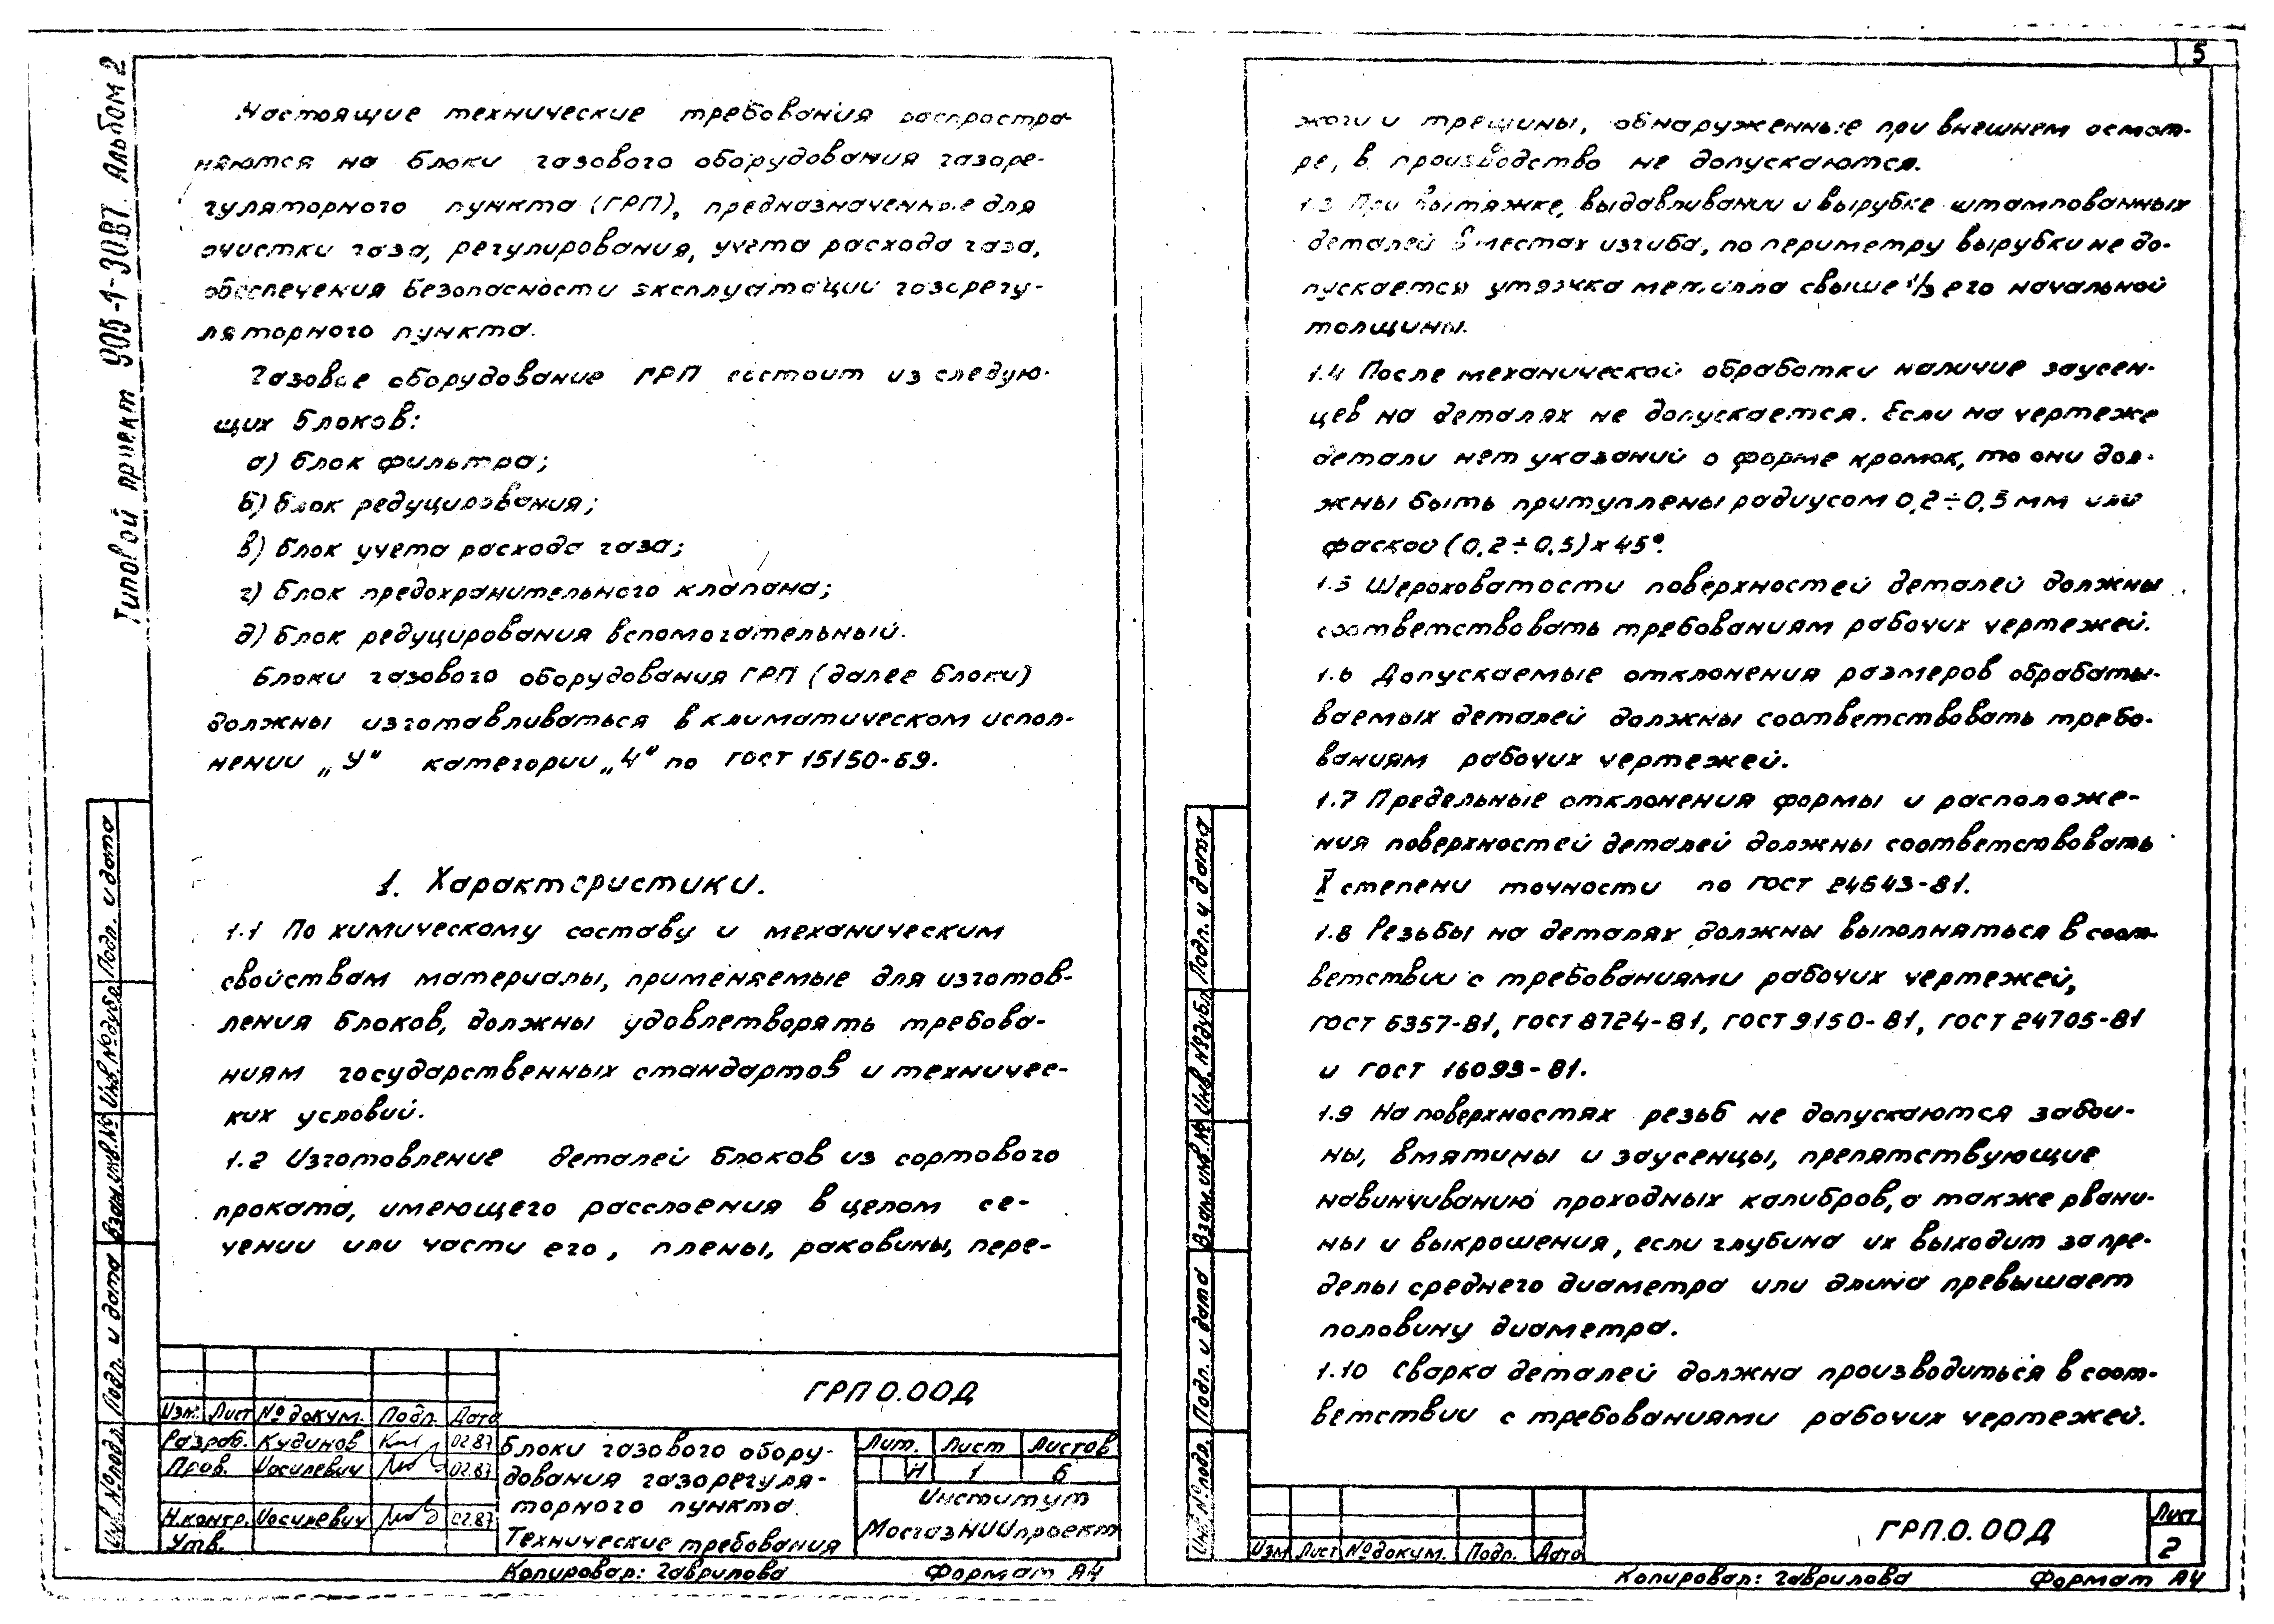 Типовой проект 905-1-30.87. Альбом 2
Настоящие технические требования распростра-
няются на блоки газового оборудования газоре-
гуляторного пункта (ГРП), предназначенные для
очистки газа, регулирования, учета расхода газа,
обеспечения безопасности эксплуатации газорегу-
ляторного пункта.
Газовое оборудование ГРП состоит из следую-
щих блоков:
а) блок фильтра;
б) блок редуцирования;
в) блок учета расхода газа;
г) блок предохранительного клапана;
д) блок редуцирования вспомогательный.
Блоки газового оборудования ГРП (далее блоки)
должны изготавливаться в климатическом испол-
нении „У" категории „4" по ГОСТ 15150-69.
1. Характеристики.
1.1 По химическому составу и механическим
свойствам материалы, применяемые для изготов-
ления блоков, должны удовлетворять требова-
ниям государственных стандартов и техничес-
ких условий.
1.2 Изготовление деталей блоков из сортового
проката, имеющего расслоения в целом се-
чении или части его, плены, раковины, пере-
Инв.№подл. Подп. и дата Взам.инв.№ Инв.№дубл. Подп. и дата
Изм. Лист № докум. Подп. Дата
Разраб. Кудинов 02.87
Пров. Иосилевич 02.87
Н.контр. Иосилевич 02.87
Утв.
ГРП 0.00Д
Блоки газового обору-
дования газорегуля-
торного пункта.
Технические требования
Лит. Лист Листов
И 1 6
Институт
МосгазНИИпроект
Копировал: Гаврилова Формат А4
5
жоги и трещины, обнаруженные при внешнем осмот-
ре, в производство не допускаются.
1.3 При вытяжке, выдавливании и вырубке штампованных
деталей в местах изгиба, по периметру вырубки не до-
пускается утяжка металла свыше 1/3 его начальной
толщины.
1.4 После механической обработки наличие заусен-
цев на деталях не допускается. Если на чертеже
детали нет указаний о форме кромок, то они дол-
жны быть притуплены радиусом 0,2÷0,5 мм или
фаской (0,2÷0,5)х45°.
1.5 Шероховатости поверхностей деталей должны
соответствовать требованиям рабочих чертежей.
1.6 Допускаемые отклонения размеров обрабаты-
ваемых деталей должны соответствовать требо-
ваниям рабочих чертежей.
1.7 Предельные отклонения формы и расположе-
ния поверхностей деталей должны соответствовать
X степени точности по ГОСТ 24643-81.
1.8 Резьбы на деталях должны выполняться в соот-
ветствии с требованиями рабочих чертежей,
ГОСТ 6357-81, ГОСТ 8724-81, ГОСТ 9150-81, ГОСТ 24705-81
и ГОСТ 16093-81.
1.9 На поверхностях резьб не допускаются забои-
ны, вмятины и заусенцы, препятствующие
навинчиванию проходных калибров, а также рвани-
ны и выкрошения, если глубина их выходит за пре-
делы среднего диаметра или длина превышает
половину диаметра.
1.10 Сварка деталей должна производиться в соот-
ветствии с требованиями рабочих чертежей.
Инв.№подл. Подп. и дата Взам.инв.№ Инв.№дубл. Подп. и дата
Изм Лист № докум. Подп. Дата
ГРП.0.00Д
Лист
2
Копировал: Гаврилова Формат А4